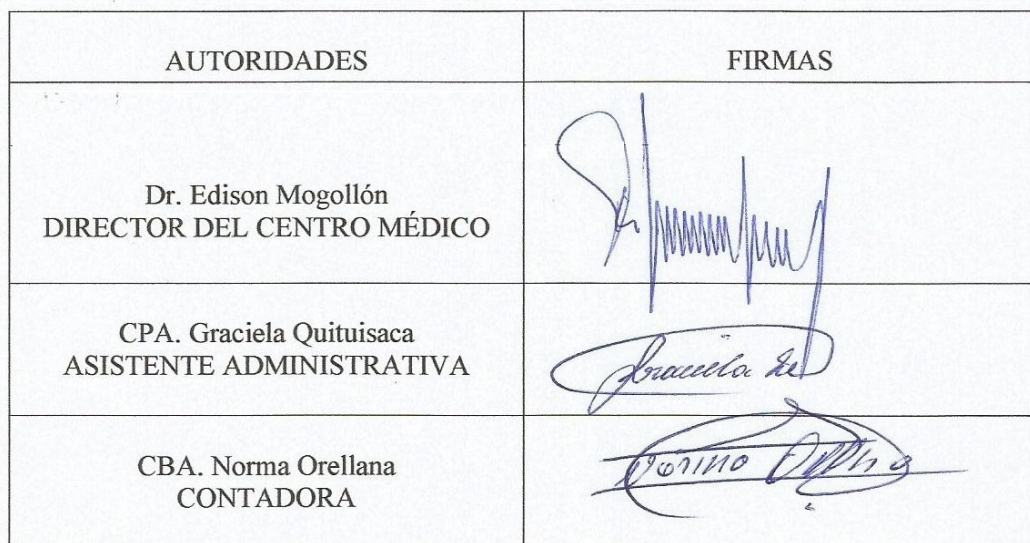 AUTORIDADES FIRMAS
Dr. Edison Mogollón
DIRECTOR DEL CENTRO MÉDICO
CPA. Graciela Quituisaca
ASISTENTE ADMINISTRATIVA
Graciela
CBA. Norma Orellana
CONTADORA